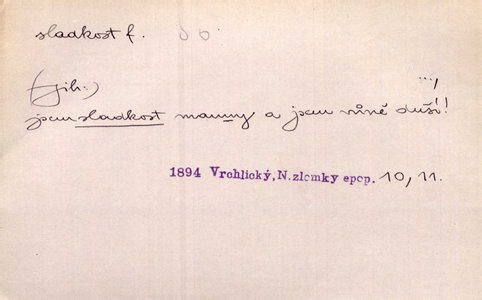 sladkost f.
(jih:)
jsem sladkost manny a jsem vůně duší!
1894 Vrchlický, N. zlomky epop. 10, 11.